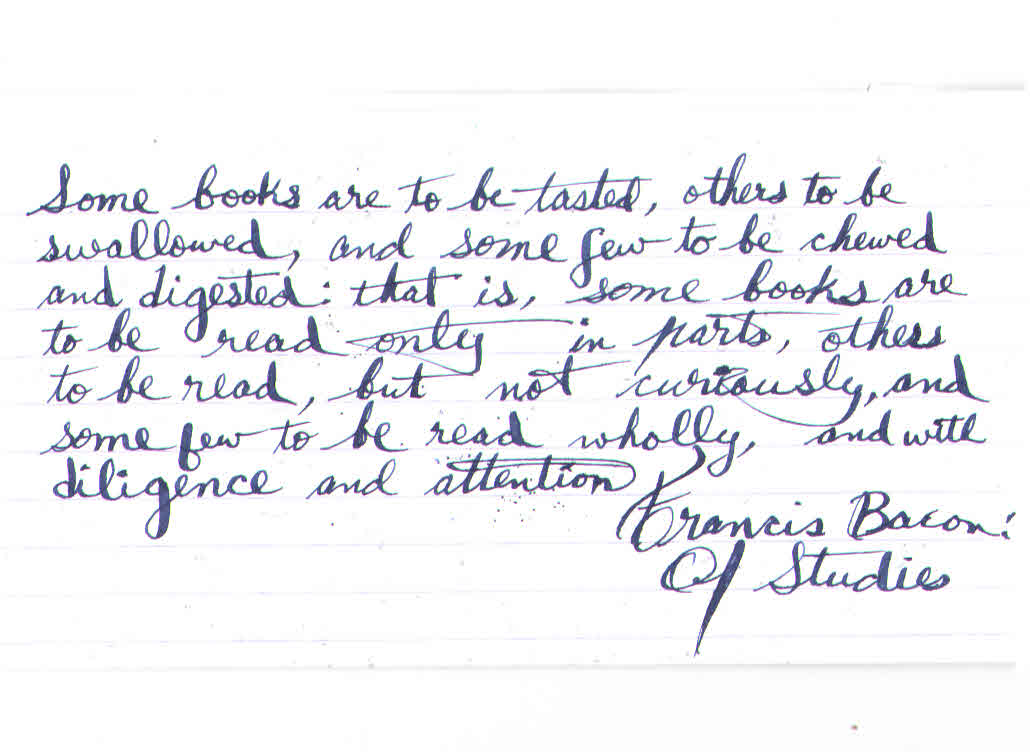 Some books are to be tasted, others to be
swallowed, and some few to be chewed
and digested: that is, some books are
to be read only in parts, others
to be read, but not curiously, and
some few to be read wholly, and with
diligence and attention
Francis Bacon:
Of Studies